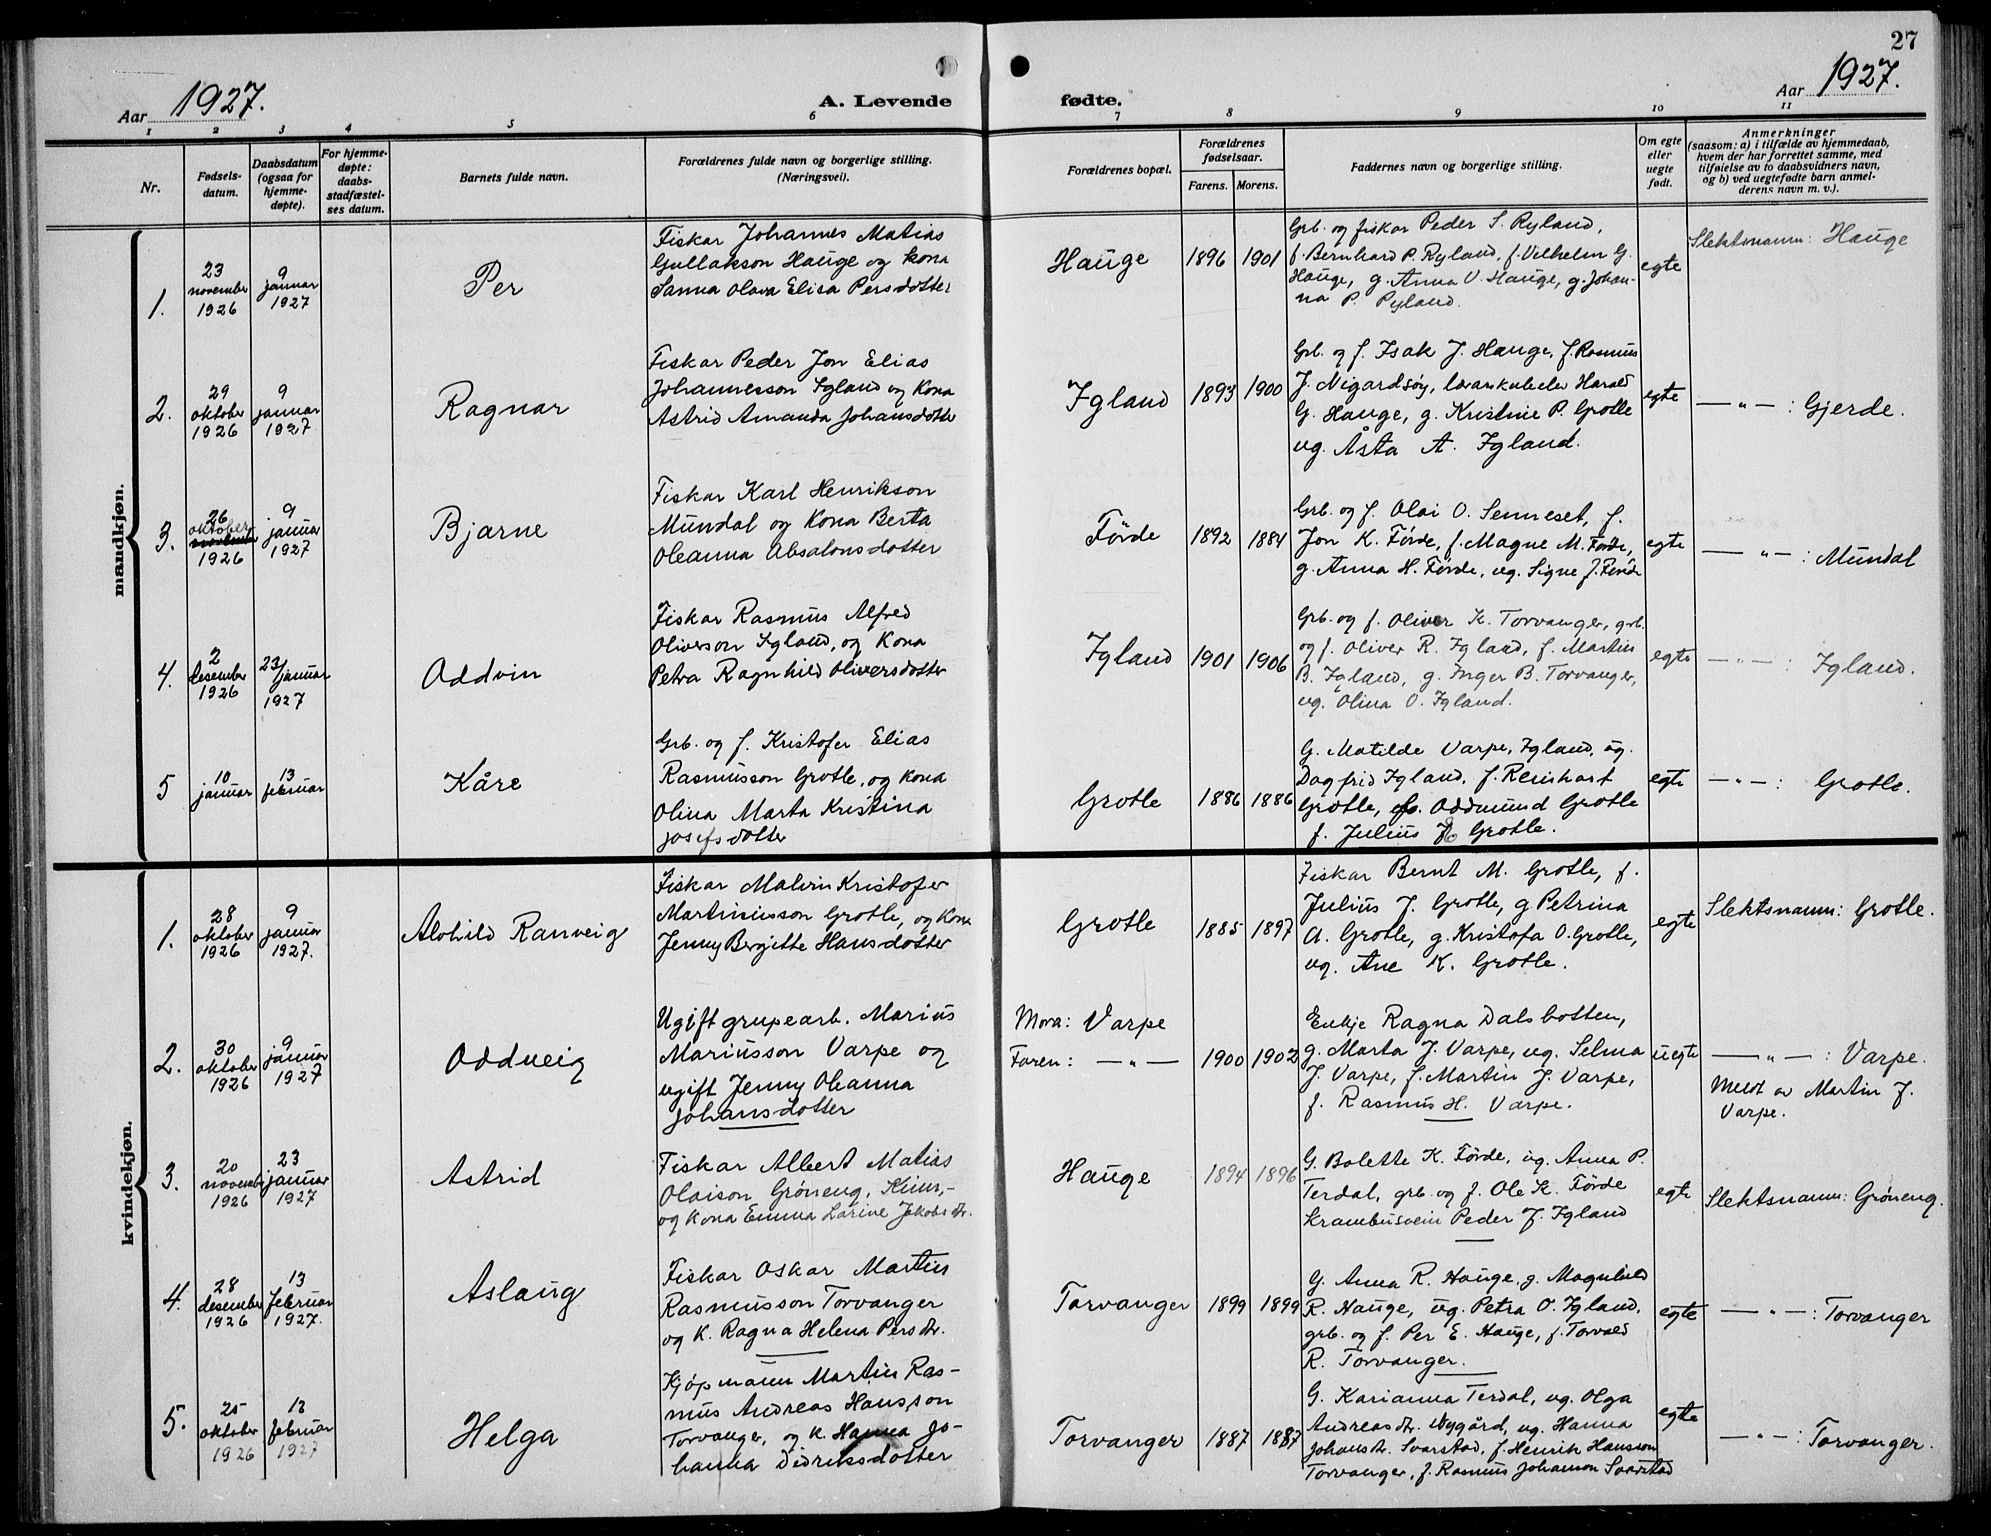 27
Aar 1927.
A. Levende fødte.
Aar 1927.
1 2 3 4 5 6 7 8 9 10 11
Nr.
Fødsels-
datum.
Daabsdatum
(ogsaa for
hjemme-
døpte).
For hjemme-
døpte:
daabs-
stadfæstel-
ses datum.
Barnets fulde navn.
Forældrenes fulde navn og borgerlige stilling.
(Næringsvei).
Forældrenes bopæl.
Forældrenes
fødselsaar.
Farens. Morens.
Faddernes navn og borgerlige stilling.
Om egte
eller
uegte
født.
Anmerkninger
(saasom: a) i tilfælde av hjemmedaab,
hvem der har forrettet samme, med
tilføielse av to daabsvidners navn,
og b) ved uegtefødte barn anmel-
derens navn m. v.).
mandkjøn.
1.
23
november
1926
9
januar
1927
Per
Fiskar Johannes Matias
Gullakson Hauge og kona
Sanna Olava Elisa Persdotter
Hauge
1896 1901
Grb. og fiskar Peder S. Ryland,
f. Bernhard P. Ryland, f. Vilhelm G.
Hauge, g. Anna O. Hauge, g. Johan-
na P. Ryland.
egte
Slektsnamn: Hauge
2.
29
oktober
1926
9
januar
1927
Ragnar
Fiskar Peder Jon Elias
Johannesson Igland og Kona
Astrid Amanda Johansdotter
Igland
1893 1900
Grb. og f. Isak J. Hauge, f. Rasmus
J. Nigardsöy, lærarskuleelev Harald
G. Hauge, g. Kristine P. Grotle
ug. Åsta A. Igland.
egte
— „ — : Gjerde.
3.
26
oktober
november
1926
9
januar
1927
Bjarne
Fiskar Karl Henrikson
Mundal og Kona Berta
Oleanna Absalonsdotter
Förde
1892 1884
Grb. og f. Olai O. Senneset, f.
Jon K. Förde, f. Magne M. Förde,
g. Anna H. Förde, ug. Signe J. Förde
egte
— „ — : Mundal
4.
2
desember
1926
23
januar
1927
Oddvin
Fiskar Rasmus Alfred
Oliverson Igland, og Kona
Petra Ragnhild Oliversdotter
Igland
1901 1906
Grb. og f. Oliver K. Torvanger, grb.
og f. Oliver R. Igland, f. Martin
B. Igland, g. Inger B. Torvanger,
ug. Olina O. Igland.
egte
— „ — : Igland.
5
10
januar
13
februar
Kåre
Grb. og f. Kristofer Elias
Rasmusson Grotle, og Kona
Olina Marta Kristina
Josefsdotter
Grotle
1886 1886
G. Matilde Varpe, Igland, ug.
Dagfrid Igland, f. Reinhart
Grotle, Oddmund Grotle
f. Julius Grotle.
egte
— „ — : Grotle.
kvindekjøn.
1.
28
oktober
1926
9
januar
1927.
Alvhild Ranveig
Fiskar Malvin Kristofer
Martinusson Grotle, og Kona
Jenny Bergitte Hansdotter
Grotle
1885 1897
Fiskar Bernt M. Grotle, f.
Julius J. Grotle, g Petrina
A. Grotle, g. Kristofa O. Grotle,
ug. Ane K. Grotle.
egte
Slektsnamn: Grotle.
2.
30
oktober
1926
9
januar
1927
Oddveig
Ugift grupearb. Marius
Mariusson Varpe og
ugift Jenny Oleanna
Johansdotter
Mora: Varpe
Faren: — „ —
1900 1902
Enkje Ragna Dalsbotten,
g. Marta J. Varpe, ug. Selma
J. Varpe, f. Martin J. Varpe,
f. Rasmus H. Varpe.
uegte
— „ — : Varpe.
Meldt av Martin J.
Varpe.
3.
20
november
1926
23
januar
1927
Astrid
Fiskar Albert Matias
Olaison Gröneng, Kinn,-
og Kona Emma Larine Jakobsdr.
Hauge
1894 1896
G. Bolette K. Förde, ug. Anna P.
Terdal, grb. og f. Ole K. Förde
Krambusvein Peder J. Igland
egte
Slektsnamn: Gröneng.
4.
28
desember
1926
13
februar
1927.
Aslaug
Fiskar Oskar Martin
Rasmusson Torvanger
og K. Ragna Helena Persdr.
Torvanger
1899 1899
G. Anna R. Hauge, g. Magnhild
R. Hauge, ug. Petra O. Igland,
grb. og f. Per E. Hauge, f. Torvald
R. Torvanger.
egte
— „ — : Torvanger
5.
25
oktober
1926
13
februar
1927
Helga
Kjöpmann Martin Ras-
mus Andreas Hansson
Torvanger, og K. Hanna Jo-
hanna Didriksdotter
Torvanger
1887 1887
G. Karianna Terdal, ug. Olga
Andreasdr. Nygård, ug. Hanna
Johansdr. Svarstad, f. Henrik Hansson
Torvanger, f. Rasmus Johanson Svarstad
egte
— „ — : Torvanger.